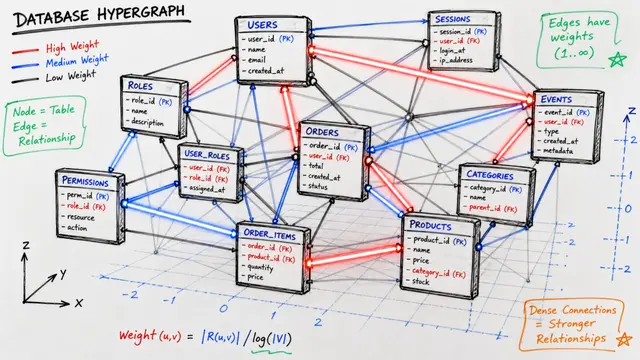 DATABASE HYPERGRAPH
High Weight
Medium Weight
Low Weight
Node = Table
Edge =
Relationship
USERS
- user_id (PK)
- name
- email
- created_at
SESSIONS
- session_id (PK)
- user_id (FK)
- login_at
- ip_address
Edges have
weights
(1..∞)
ROLES
- role_id (PK)
- name
- description
EVENTS
- event_id (PK)
- user_id (FK)
- type
- created_at
- metadata
ORDERS
- order_id (PK)
- user_id (FK)
- total
- created_at
- status
USER_ROLES
- user_id (FK)
- role_id (FK)
- assigned_at
CATEGORIES
- category_id (PK)
- name
- parent_id (FK)
PERMISSIONS
- perm_id (PK)
- role_id (FK)
- resource
- action
ORDER_ITEMS
- order_id (FK)
- product_id (FK)
- quantity
- price
PRODUCTS
- product_id (PK)
- name
- price
- category_id (FK)
- stock
Z
Y
X
-2
-1
0
1
2
2
0
-2
Weight (u,v) = |R(u,v)| / log(|V|)
Dense Connections
= Stronger
Relationships